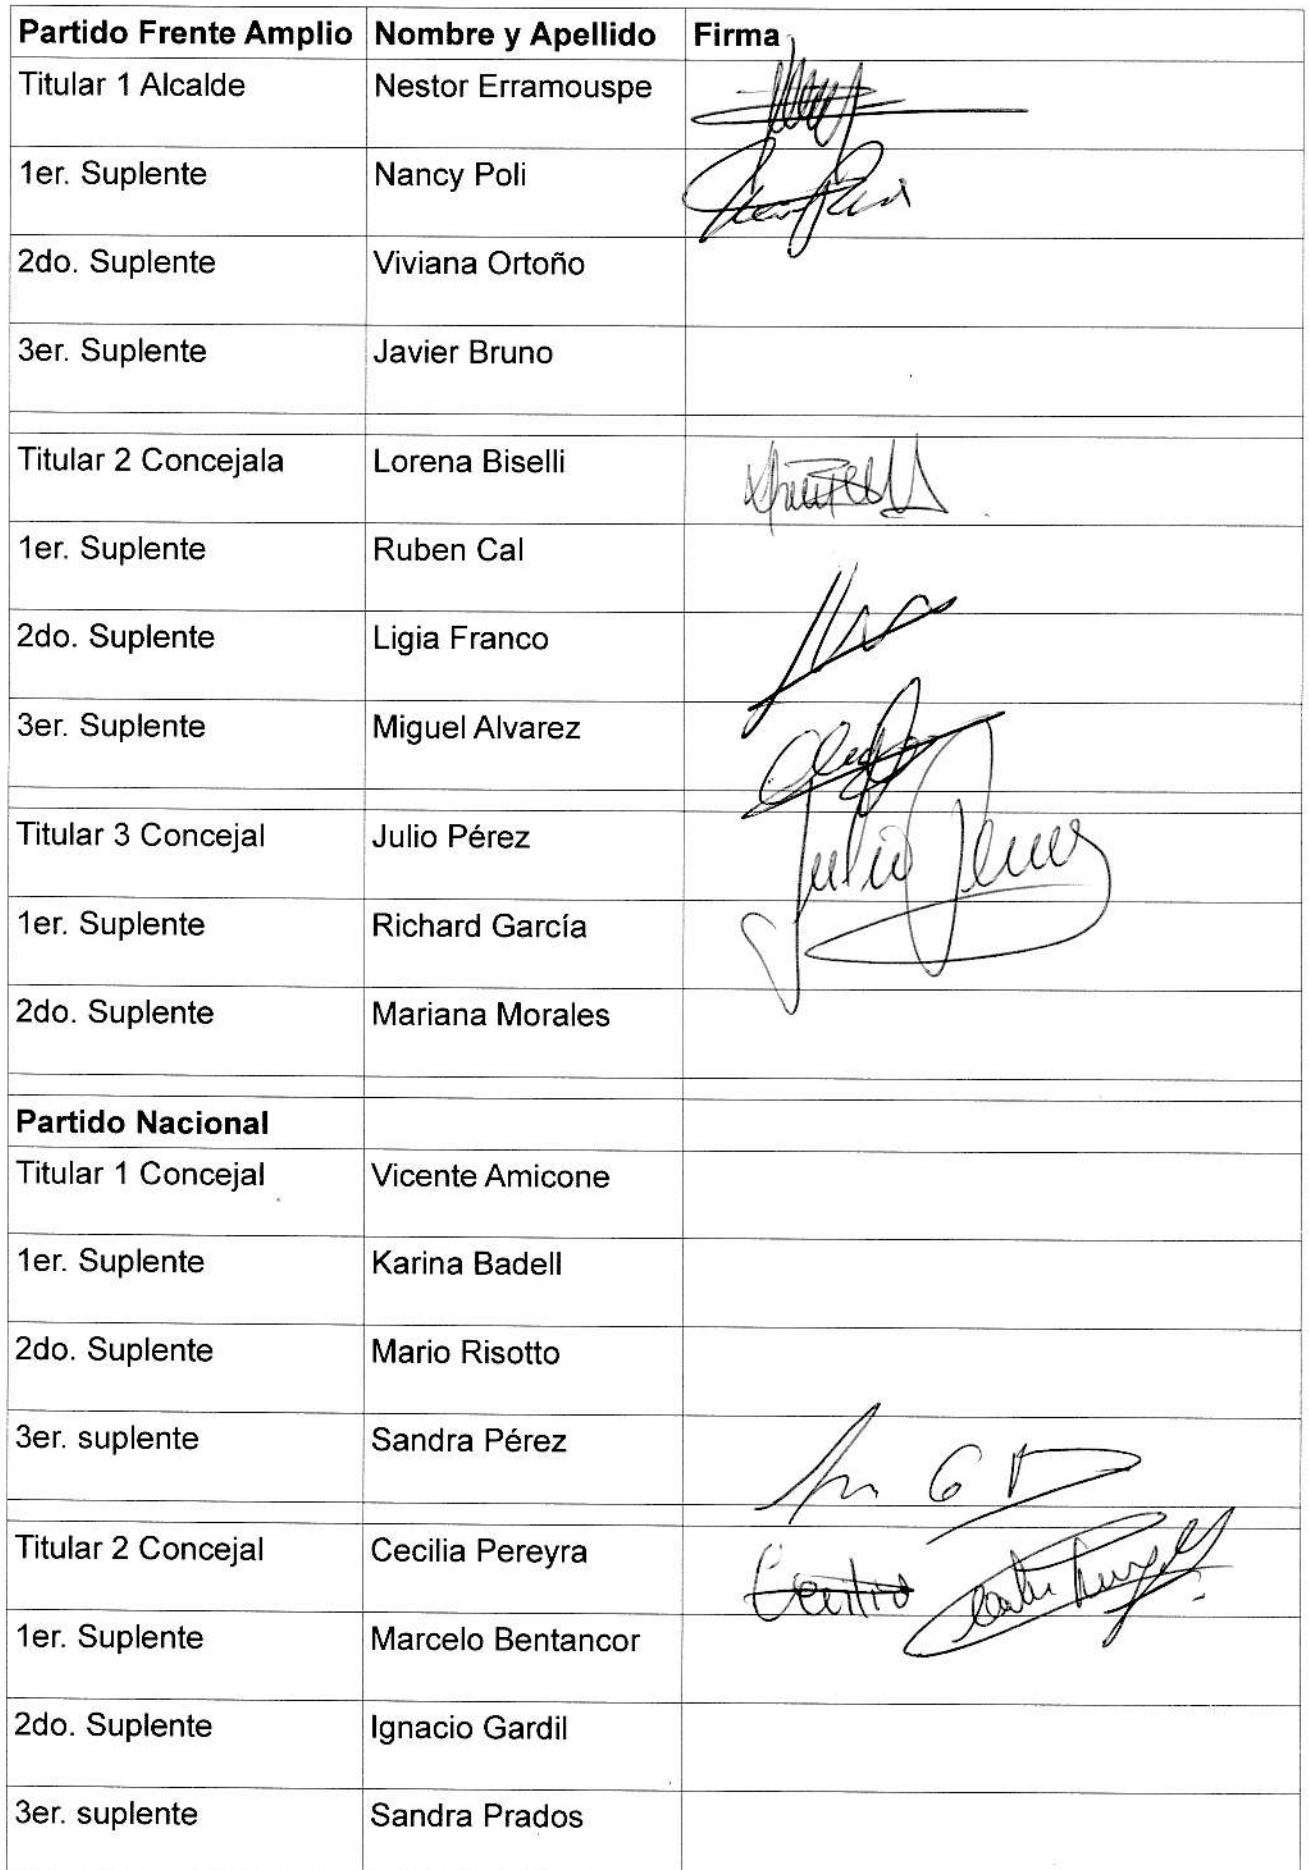 Partido Frente Amplio Nombre y Apellido Firma
Titular 1 Alcalde Nestor Erramouspe
1er. Suplente Nancy Poli
2do. Suplente Viviana Ortoño
3er. Suplente Javier Bruno
Titular 2 Concejala Lorena Biselli
1er. Suplente Ruben Cal
2do. Suplente Ligia Franco
3er. Suplente Miguel Alvarez
Titular 3 Concejal Julio Pérez
Julio Perez
1er. Suplente Richard García
2do. Suplente Mariana Morales
Partido Nacional
Titular 1 Concejal Vicente Amicone
1er. Suplente Karina Badell
2do. Suplente Mario Risotto
3er. suplente Sandra Pérez
Titular 2 Concejal Cecilia Pereyra
1er. Suplente Marcelo Bentancor
2do. Suplente Ignacio Gardil
3er. suplente Sandra Prados